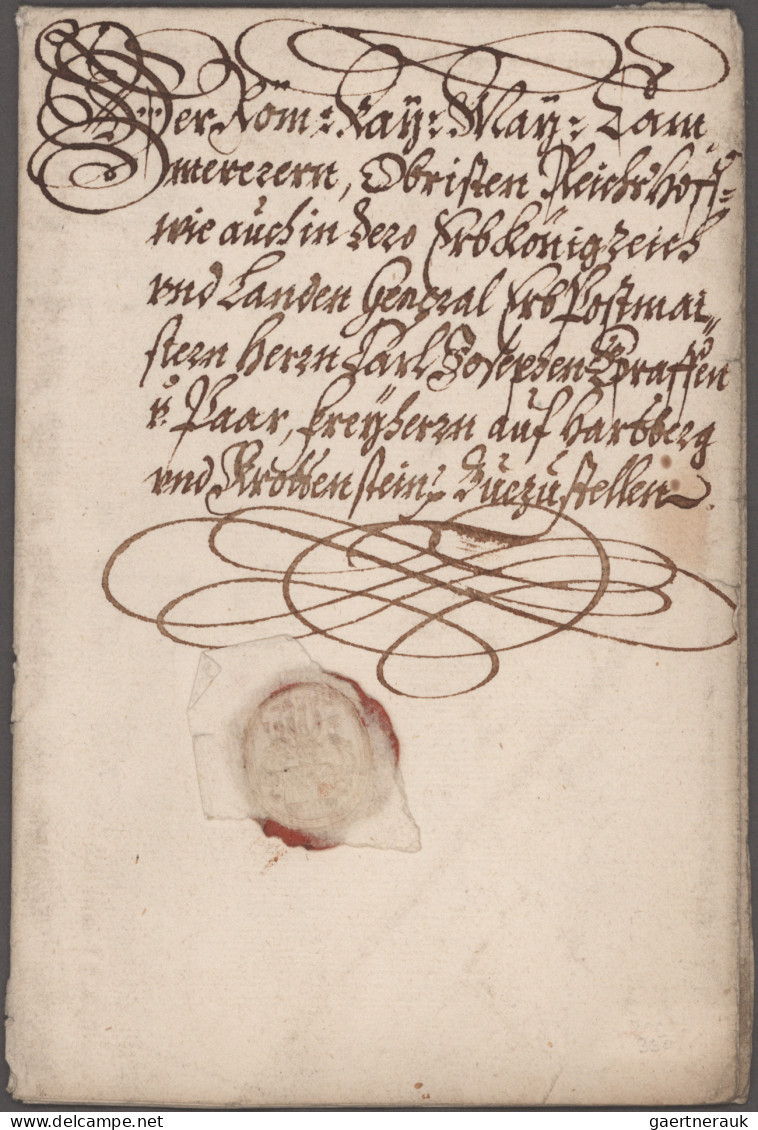 Der Röm: Kay: May: Cam¬
merern, Obristen Reichs Hoff=
wie auch in dero ErbKönigreich
vnd Landen General ErbPostmai¬
stern Herrn Carl Josephen Graffen
v: Paar, freyherrn auf Hartberg
vnd Krottenstein, Zuezustellen.
delcampe.net
gaertnerauk